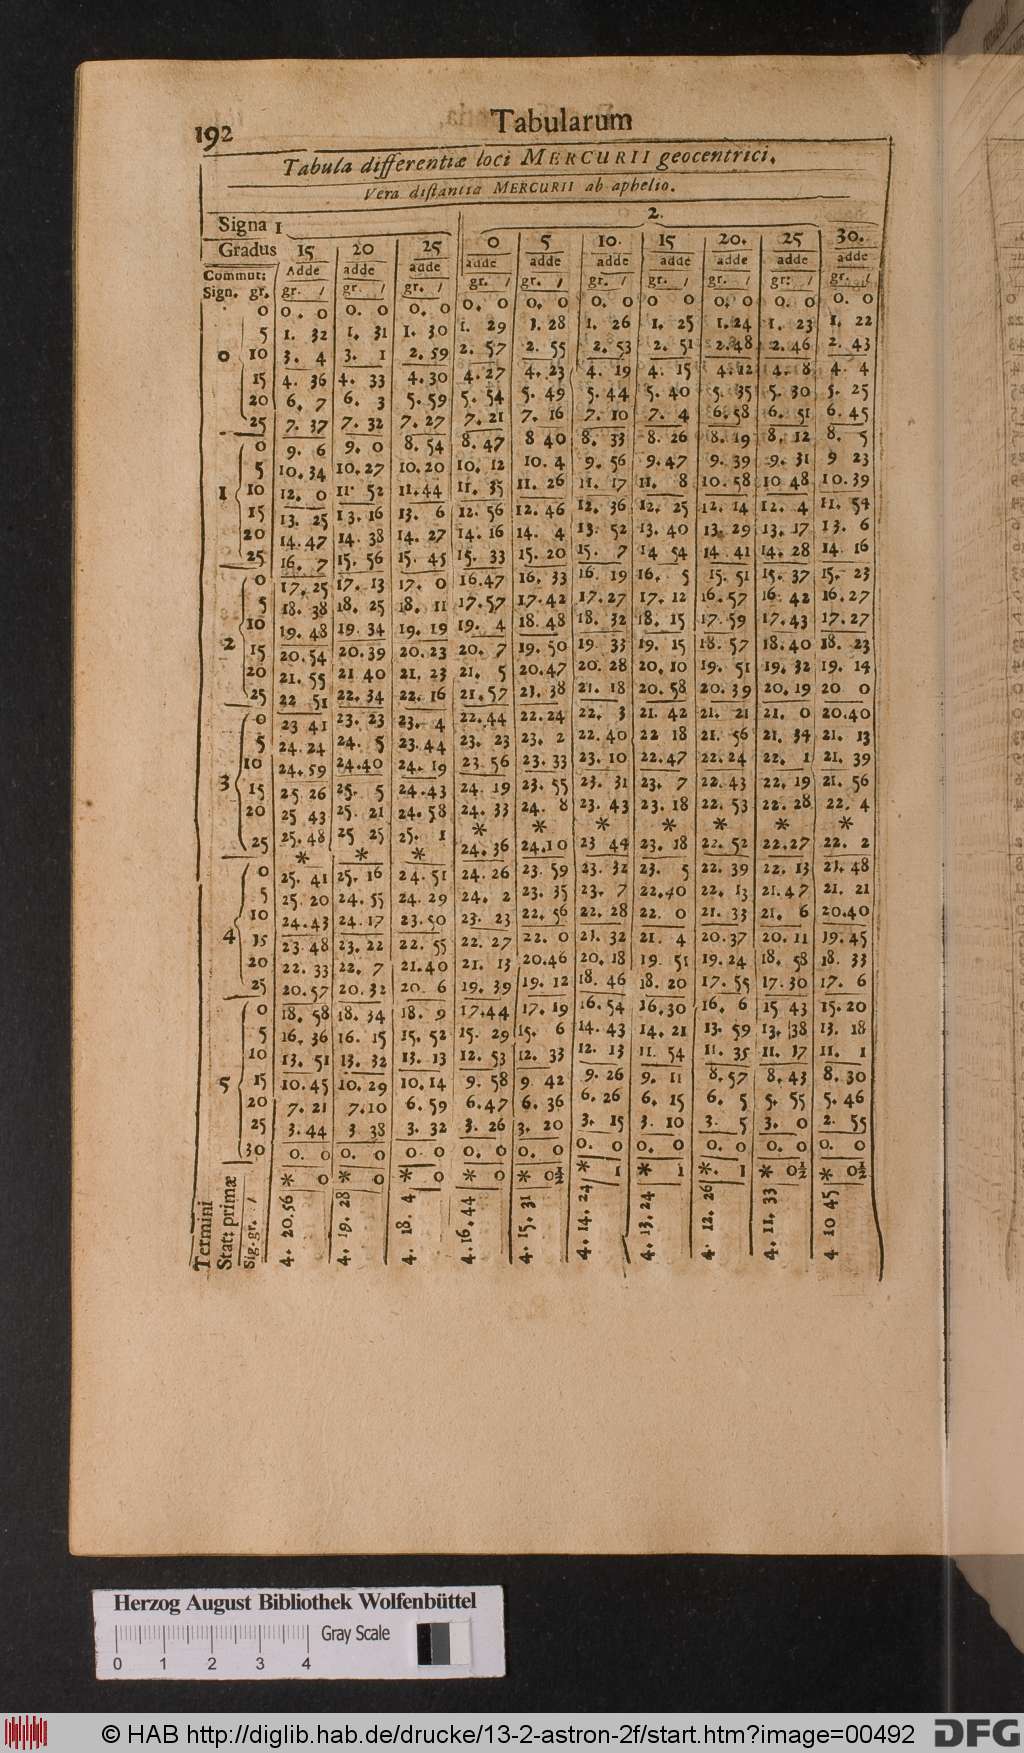 192 Tabularum
Tabula differentiæ loci MERCURII geocentrici.
Vera distantia MERCURII ab aphelio.
Signa 1 2.
Gradus 15 20 25 0 5 10. 15 20. 25 30.
Commut: Adde adde adde adde adde adde adde adde adde adde
Sign. gr. gr. / gr. / gr. / gr. / gr. / gr. / gr. / gr. / gr: / gr. /
0 0. 0 0. 0 0. 0 0. 0 0. 0 0. 0 0 0 0. 0 0. 0 0. 0
5 1. 32 1. 31 1. 30 1. 29 1. 28 1. 26 1. 25 1.24 1. 23 1. 22
0 10 3. 4 3. 1 2. 59 2. 57 2. 55 2. 53 2. 51 2.48 2.46 2. 43
15 4. 36 4. 33 4.30 4.27 4.23 4. 19 4. 15 4.12 4. 8 4. 4
20 6. 7 6. 3 5.59 5. 54 5. 49 5.44 5. 40 5. 35 5. 30 5. 25
25 7. 37 7. 32 7. 27 7. 21 7. 16 7. 10 7. 4 6.58 6. 51 6. 45
0 9. 6 9. 0 8. 54 8. 47 8 40 8. 33 8. 26 8.19 8. 12 8. 5
5 10.34 10.27 10.20 10. 12 10. 4 9. 56 9.47 9. 39 9. 31 9 23
1 10 12. 0 11. 52 11.44 11. 35 11. 26 11. 17 11. 8 10.58 10 48 10.39
15 13. 25 13.16 13. 6 12. 56 12. 46 12. 36 12. 25 12. 14 12. 4 11. 54
20 14.47 14. 38 14. 27 14. 16 14. 4 13. 52 13. 40 13. 29 13. 17 13. 6
25 16. 7 15. 56 15. 45 15. 33 15. 20 15. 7 14 54 14. 41 14. 28 14. 16
0 17. 25 17. 13 17. 0 16.47 16. 33 16. 19 16. 5 15. 51 15. 37 15. 23
5 18. 38 18. 25 18. 11 17.57 17.42 17.27 17. 12 16.57 16. 42 16.27
10 19. 48 19. 34 19. 19 19. 4 18. 48 18. 32 18. 15 17.59 17.43 17.27
2 15 20.54 20.39 20.23 20. 7 19. 50 19 33 19. 15 18. 57 18.40 18. 23
20 21. 55 21 40 21. 23 21. 5 20.47 20. 28 20. 10 19. 51 19. 32 19. 14
25 22 51 22. 34 22. 16 21.57 21. 38 21. 18 20. 58 20. 39 20. 19 20 0
0 23 41 23. 23 23. 4 22.44 22.24 22. 3 21. 42 21. 21 21. 0 20.40
5 24. 24 24. 5 23.44 23. 23 23. 2 22.40 22 18 21. 56 21. 34 21. 13
10 24.59 24.40 24. 19 23 56 23. 33 23. 10 22.47 22.24 22. 1 21. 39
3 15 25 26 25. 5 24.43 24. 19 23. 55 23. 31 23. 7 22.43 22. 19 21. 56
20 25 43 25. 21 24. 58 24. 33 24. 8 23. 43 23. 18 22. 53 22. 28 22. 4
* * * * * * *
25 25. 48 25 25 25. 1 24. 36 24.10 23 44 23. 18 22. 52 22.27 22. 2
* * *
0 25. 41 25. 16 24. 51 24. 26 23. 59 23. 32 23. 5 22. 39 22. 13 21. 48
5 25. 20 24. 55 24. 29 24. 2 23. 35 23. 7 22.40 22. 13 21.47 21. 21
10 24.43 24.17 23.50 23. 23 22. 56 22. 28 22. 0 21. 33 21. 6 20.40
4 15 23 48 23. 22 22. 55 22. 27 22. 0 21. 32 21. 4 20.37 20.11 19.45
20 22. 33 22. 7 21.40 21. 13 20.46 20. 18 19. 51 19.24 18. 58 18. 33
25 20.57 20.32 20. 6 19. 39 19. 12 18. 46 18. 20 17. 55 17.30 17. 6
0 18. 58 18. 34 18. 9 17.44 17. 19 16.54 16.30 16. 6 15 43 15.20
5 16. 36 16. 15 15. 52 15. 29 15. 6 14.43 14. 21 13. 59 13. 38 13. 18
10 13. 51 13. 32 13. 13 12. 53 12. 33 12. 13 11. 54 11. 35 11. 17 11. 1
5 15 10.45 10.29 10.14 9. 58 9 42 9. 26 9. 11 8.57 8. 43 8. 30
20 7. 21 7.10 6. 59 6.47 6. 36 6. 26 6. 15 6. 5 5. 55 5. 46
25 3. 44 3. 38 3. 32 3. 26 3. 20 3. 15 3. 10 3. 5 3. 0 2. 55
30 0. 0 0. 0 0. 0 0. 0 0. 0 0. 0 0. 0 0. 0 0. 0 0. 0
* 0 * 0 * 0 * 0 * 0½ * 1 * 1 * 1 * 0½ * 0½
Termini
Stat: primæ
Sig. gr. /
4. 20.56
4. 19. 28
4. 18. 4
4. 16. 44
4. 15. 31
4. 14. 24
4. 13. 24
4. 12. 26
4. 11. 33
4 10 45
Herzog August Bibliothek Wolfenbüttel
Gray Scale
0 1 2 3 4
© HAB http://diglib.hab.de/drucke/13-2-astron-2f/start.htm?image=00492 DFG